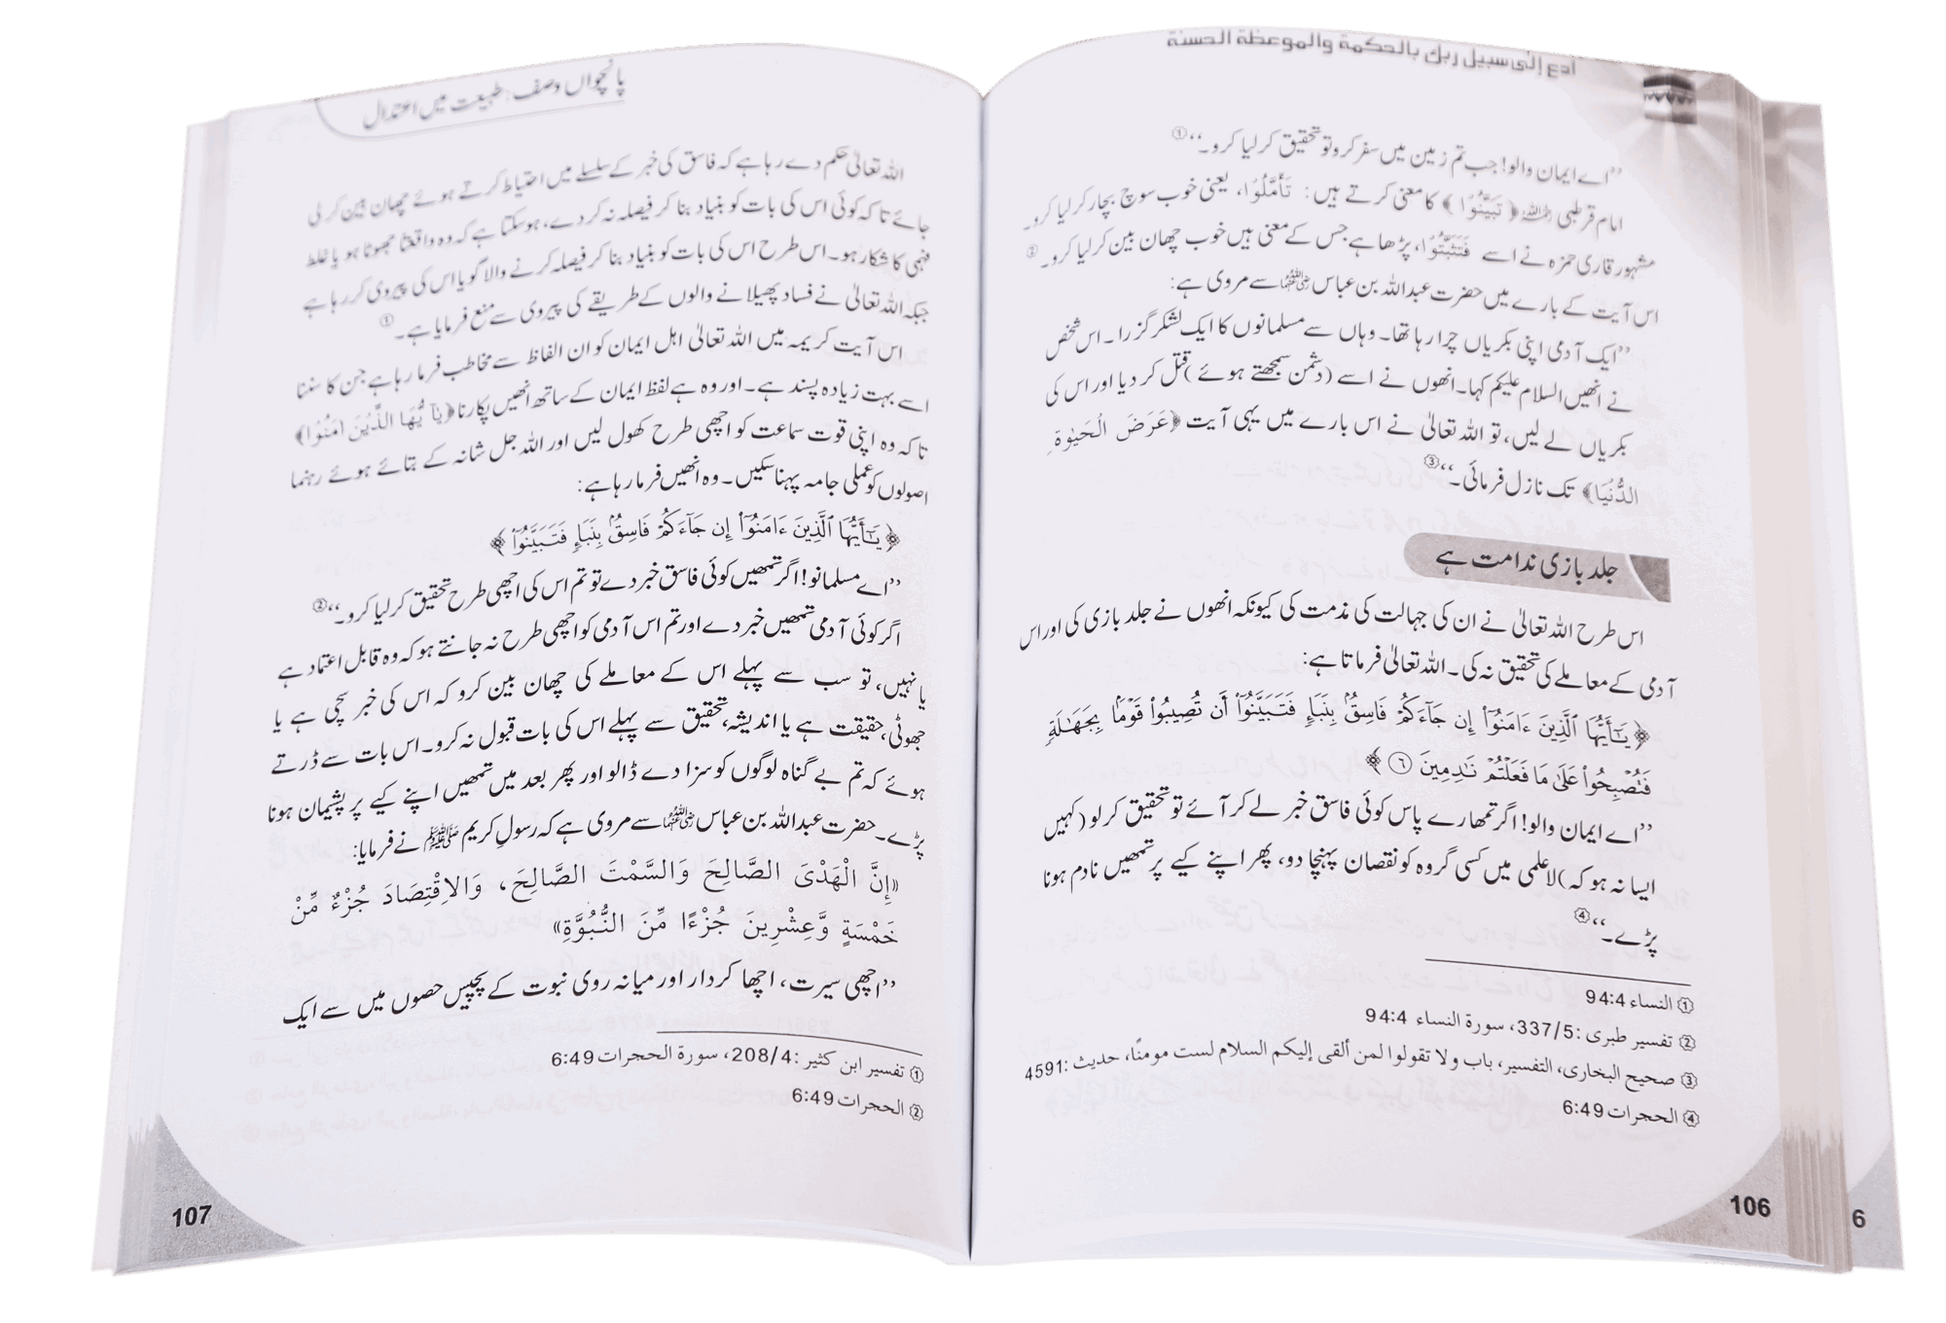 ادع إلى سبيل ربك بالحكمة والموعظة الحسنة
’’اے ایمان والو! جب تم زمین میں سفر کرو تو تحقیق کر لیا کرو۔‘‘①
امام قرطبی رحمہ اللہ ﴿تَبَيَّنُوْا﴾ کا معنی کرتے ہیں: تَأَمَّلُوْا، یعنی خوب سوچ بچار کر لیا کرو۔
مشہور قاری حمزہ نے اسے فَتَثَبَّتُوْا، پڑھا ہے جس کے معنی ہیں خوب چھان بین کر لیا کرو۔②
اس آیت کے بارے میں حضرت عبداللہ بن عباس رضی اللہ عنہما سے مروی ہے:
’’ایک آدمی اپنی بکریاں چرا رہا تھا۔ وہاں سے مسلمانوں کا ایک لشکر گزرا۔ اس شخص
نے انھیں السلام علیکم کہا۔ انھوں نے اسے (دشمن سمجھتے ہوئے) قتل کر دیا اور اس کی
بکریاں لے لیں، تو اللہ تعالیٰ نے اس بارے میں یہی آیت ﴿عَرَضَ الْحَيٰوةِ
الدُّنْيَا﴾ تک نازل فرمائی۔‘‘③
جلد بازی ندامت ہے
اس طرح اللہ تعالیٰ نے ان کی جہالت کی مذمت کی کیونکہ انھوں نے جلد بازی کی اور اس
آدمی کے معاملے کی تحقیق نہ کی۔ اللہ تعالیٰ فرماتا ہے:
﴿يَـٰٓأَيُّهَا ٱلَّذِينَ ءَامَنُوٓا۟ إِن جَآءَكُمْ فَاسِقٌۢ بِنَبَإٍ فَتَبَيَّنُوٓا۟ أَن تُصِيبُوا۟ قَوْمًۢا بِجَهَـٰلَةٍ
فَتُصْبِحُوا۟ عَلَىٰ مَا فَعَلْتُمْ نَـٰدِمِينَ ٦﴾
’’اے ایمان والو! اگر تمھارے پاس کوئی فاسق خبر لے کر آئے تو تحقیق کر لو (کہیں
ایسا نہ ہو کہ) لاعلمی میں کسی گروہ کو نقصان پہنچا دو، پھر اپنے کیے پر تمھیں نادم ہونا
پڑے۔‘‘④
① النساء 94:4
② تفسیر طبری: 337/5، سورة النساء 94:4
③ صحیح البخاری، التفسیر، باب ولا تقولوا لمن ألقى إليكم السلام لست مومنًا، حدیث: 4591
④ الحجرات 6:49
106
6
پانچواں وصف: طبیعت میں اعتدال
اللہ تعالیٰ حکم دے رہا ہے کہ فاسق کی خبر کے سلسلے میں احتیاط کرتے ہوئے چھان بین کر لی
جائے تاکہ کوئی اس کی بات کو بنیاد بنا کر فیصلہ نہ کر دے، ہو سکتا ہے کہ وہ واقعتًا جھوٹا ہو یا غلط
فہمی کا شکار ہو۔ اس طرح اس کی بات کو بنیاد بنا کر فیصلہ کرنے والا گویا اس کی پیروی کر رہا ہے
جبکہ اللہ تعالیٰ نے فساد پھیلانے والوں کے طریقے کی پیروی سے منع فرمایا ہے۔①
اس آیت کریمہ میں اللہ تعالیٰ اہل ایمان کو ان الفاظ سے مخاطب فرما رہا ہے جن کا سننا
اسے بہت زیادہ پسند ہے۔ اور وہ ہے لفظ ایمان کے ساتھ انھیں پکارنا ﴿يٰٓاَيُّهَا الَّذِيْنَ اٰمَنُوْا﴾
تاکہ وہ اپنی قوت سماعت کو اچھی طرح کھول لیں اور اللہ جل شانہ کے بتائے ہوئے رہنما
اصولوں کو عملی جامہ پہنا سکیں۔ وہ انھیں فرما رہا ہے:
﴿يَـٰٓأَيُّهَا ٱلَّذِينَ ءَامَنُوٓا۟ إِن جَآءَكُمْ فَاسِقٌۢ بِنَبَإٍ فَتَبَيَّنُوٓا۟﴾
’’اے مسلمانو! اگر تمھیں کوئی فاسق خبر دے تو تم اس کی اچھی طرح تحقیق کر لیا کرو۔‘‘②
اگر کوئی آدمی تمھیں خبر دے اور تم اس آدمی کو اچھی طرح نہ جانتے ہو کہ وہ قابل اعتماد ہے
یا نہیں، تو سب سے پہلے اس کے معاملے کی چھان بین کرو کہ اس کی خبر سچی ہے یا
جھوٹی، حقیقت ہے یا اندیشہ، تحقیق سے پہلے اس کی بات قبول نہ کرو۔ اس بات سے ڈرتے
ہوئے کہ تم بے گناہ لوگوں کو سزا دے ڈالو اور پھر بعد میں تمھیں اپنے کیے پر پشیمان ہونا
پڑے۔ حضرت عبداللہ بن عباس رضی اللہ عنہما سے مروی ہے کہ رسولِ کریم ﷺ نے فرمایا:
«إِنَّ الْهَدْىَ الصَّالِحَ وَالسَّمْتَ الصَّالِحَ، وَالاِقْتِصَادَ جُزْءٌ مِّنْ
خَمْسَةٍ وَّعِشْرِينَ جُزْءًا مِّنَ النُّبُوَّةِ»
’’اچھی سیرت، اچھا کردار اور میانہ روی نبوت کے پچیس حصوں میں سے ایک
① تفسیر ابن کثیر: 208/4، سورة الحجرات 6:49
② الحجرات 6:49
107